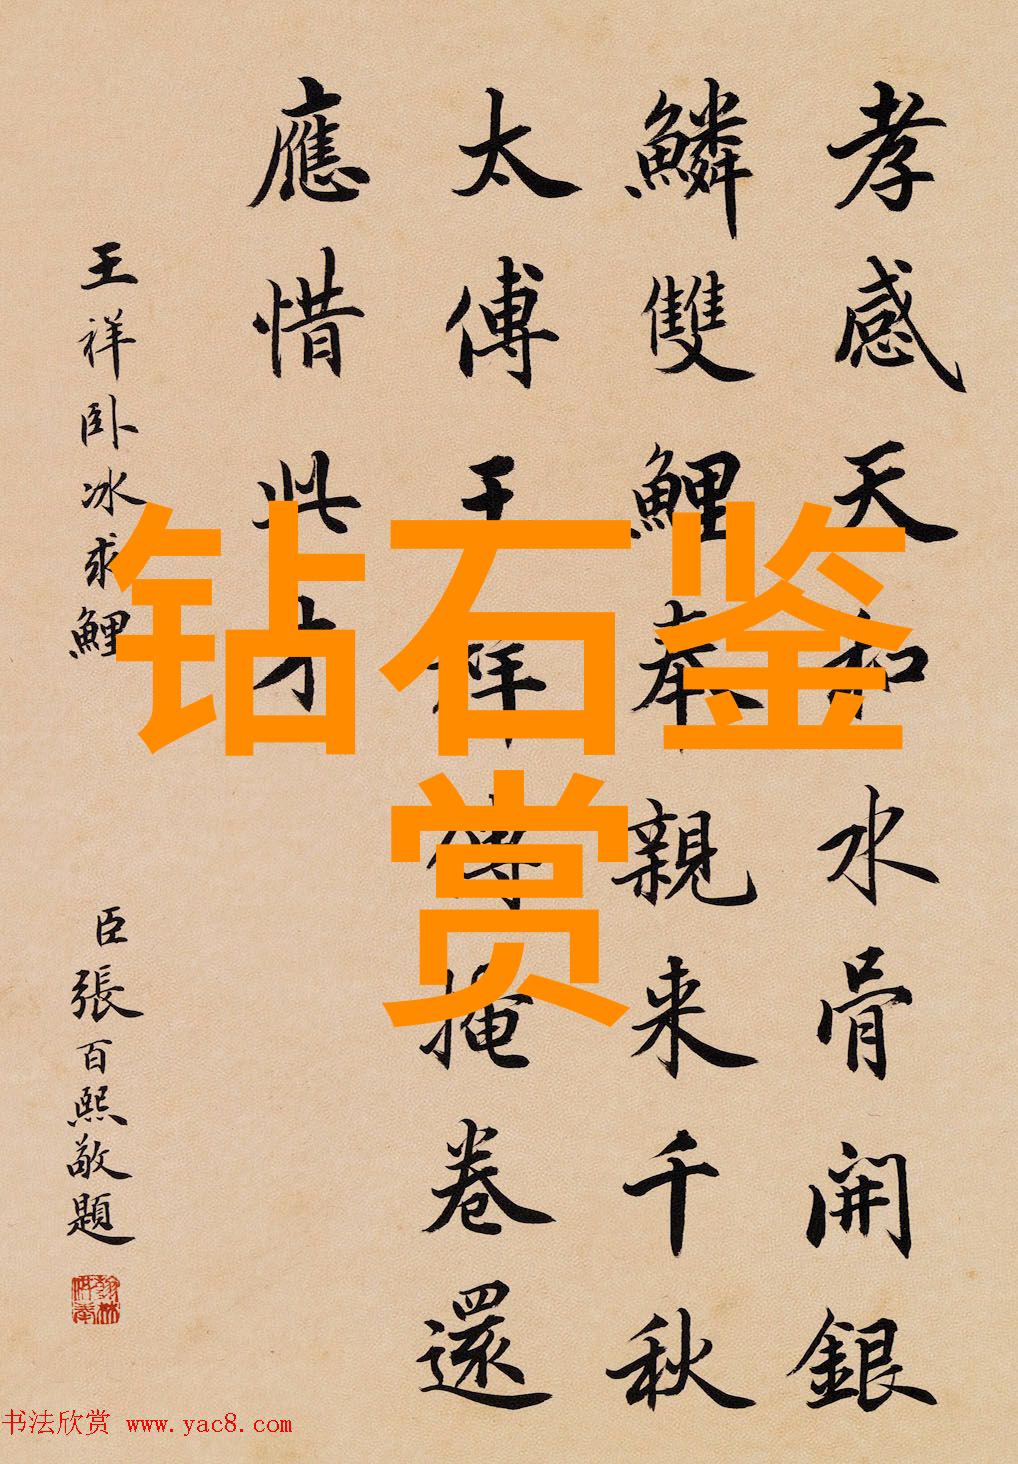 孝感天和水骨開銀
鱗雙鯉奉親来千秋
太傅王祥傳掩卷還
應惜此才
王祥卧冰求鯉
臣張百熙敬題
钻石鉴
赏
书法欣赏 www.yac8.com